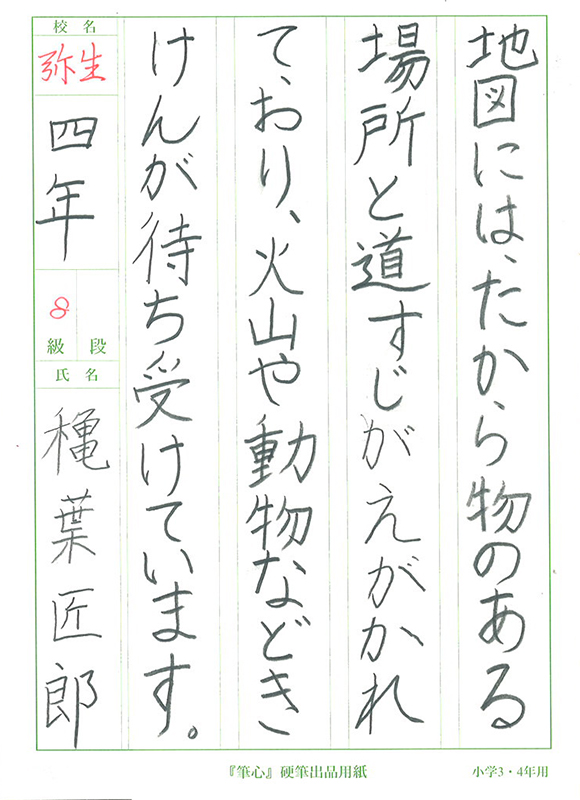 地図には、たから物のある
場所と道すじがえがかれ
て、おり、火山や動物などき
けんが待ち受けています。
校名
弥生
四年
8
級 段
氏名
穐葉匠郎
『筆心』硬筆出品用紙
小学3・4年用